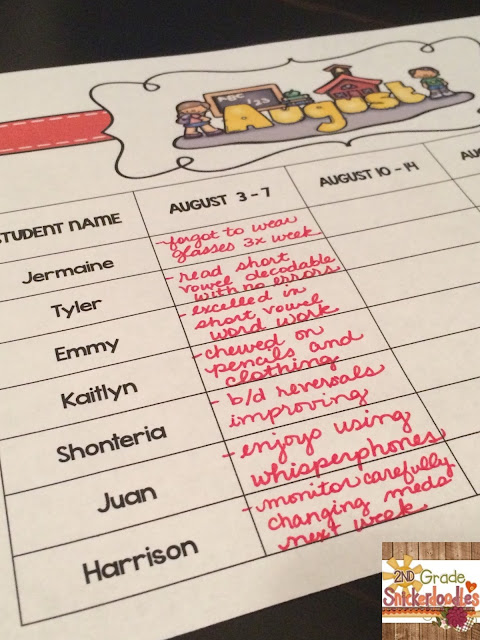 ABC
123
August
STUDENT NAME
AUGUST 3 - 7
AUGUST 10 - 14
AU
Jermaine
- forgot to wear
glasses 3x week
Tyler
- read short
vowel decodable
with no errors
Emmy
- excelled in
short vowel
word work
Kaitlyn
- chewed on
pencils and
clothing
Shonteria
- b/d reversals
improving
Juan
- enjoys using
whisperphones
Harrison
- monitor carefully
changing meds
next week
2ND Grade
Snickerdoodles